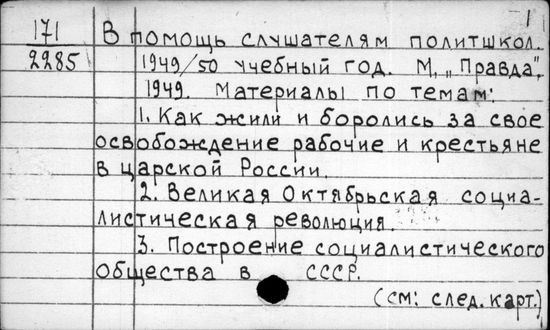 1
171
2285
В помощь слушателям политшкол.
1949/50 учебный год. М, "Правда",
1949. Материалы по темам:
1. Как жили и боролись за свое
освобождение рабочие и крестьяне
в царской России.
2. Великая Октябрьская социа-
листическая революция.
3. Построение социалистического
общества в СССР.
(см: след. карт.)